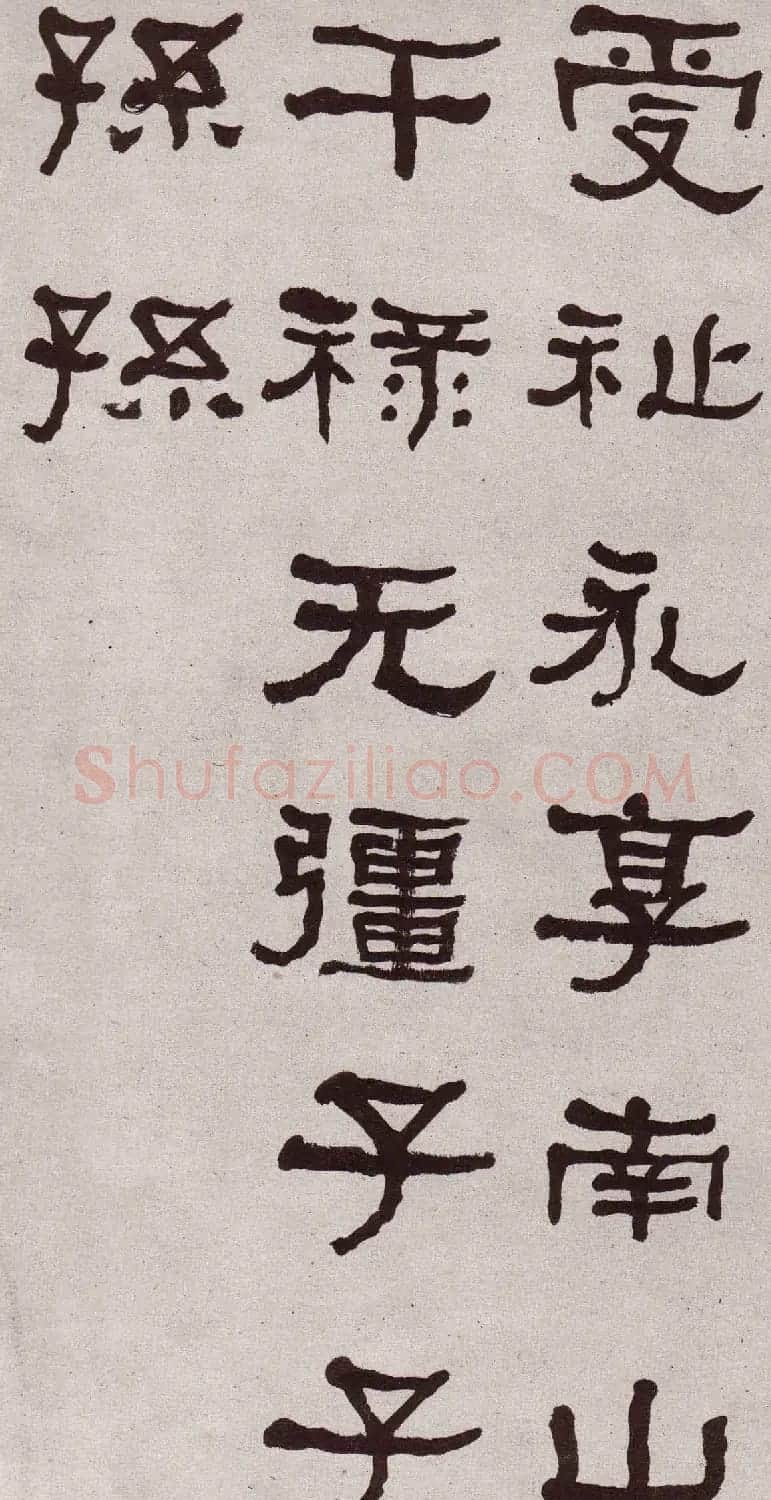 受祉永享南山
干禄无彊子子
孫孫
Shufaziliao.COM